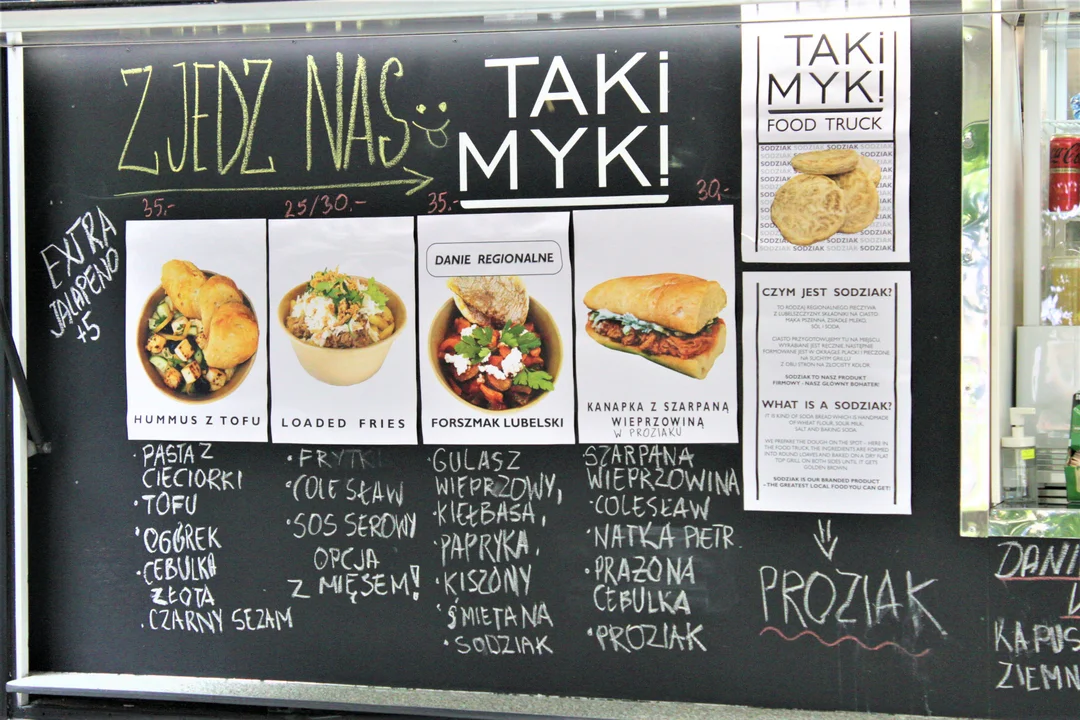 ZJEDZ NAS
TAKi
MYK!
EXTRA
JALAPENO
+5
35,-
25/30,-
35,-
30,-
HUMMUS Z TOFU
LOADED FRIES
DANIE REGIONALNE
FORSZMAK LUBELSKI
KANAPKA Z SZARPANĄ
WIEPRZOWINĄ
W PROZIAKU
PASTA Z
CIECIORKI
· TOFU
· OGÓREK
· CEBULKA
ZŁOTA
· CZARNY SEZAM
· FRYTKI
· COLESŁAW
· SOS SEROWY
OPCJA
Z MIĘSEM!
· GULASZ
WIEPRZOWY,
· KIEŁBASA,
· PAPRYKA,
· KISZONY
· ŚMIETANA
· SODZIAK
SZARPANA
WIEPRZOWINA
· COLESŁAW
· NATKA PIETR.
· PRAŻONA
CEBULKA
· PROZIAK
TAKi
MYK!
FOOD TRUCK
SODZIAK SODZIAK SODZIAK SODZIAK
CZYM JEST SODZIAK?
TO RODZAJ REGIONALNEGO PIECZYWA
Z LUBELSZCZYZNY. SKŁADNIKI NA CIASTO:
MĄKA PSZENNA, ZSIADŁE MLEKO,
SÓL I SODA.
CIASTO PRZYGOTOWUJEMY TU NA MIEJSCU
WYRABIANE JEST RĘCZNIE, NASTĘPNIE
FORMOWANE JEST W OKRĄGŁE PLACKI I PIECZONE
NA SUCHYM GRILLU
Z OBU STRON NA ZŁOCISTY KOLOR.
SODZIAK TO NASZ PRODUKT
FIRMOWY - NASZ GŁÓWNY BOHATER!
WHAT IS A SODZIAK?
IT IS KIND OF SODA BREAD WHICH IS HANDMADE
OF WHEAT FLOUR, SOUR MILK,
SALT AND BAKING SODA.
WE PREPARE THE DOUGH ON THE SPOT – HERE IN
THE FOOD TRUCK. THE INGREDIENTS ARE FORMED
INTO ROUND LOAVES AND BAKED ON A DRY FLAT
TOP GRILL ON BOTH SIDES UNTIL IT GETS
GOLDEN BROWN.
SODZIAK IS OUR BRANDED PRODUCT
– THE GREATEST LOCAL FOOD YOU CAN GET!
PROZIAK
DANI
KAPUS
ZIEMN